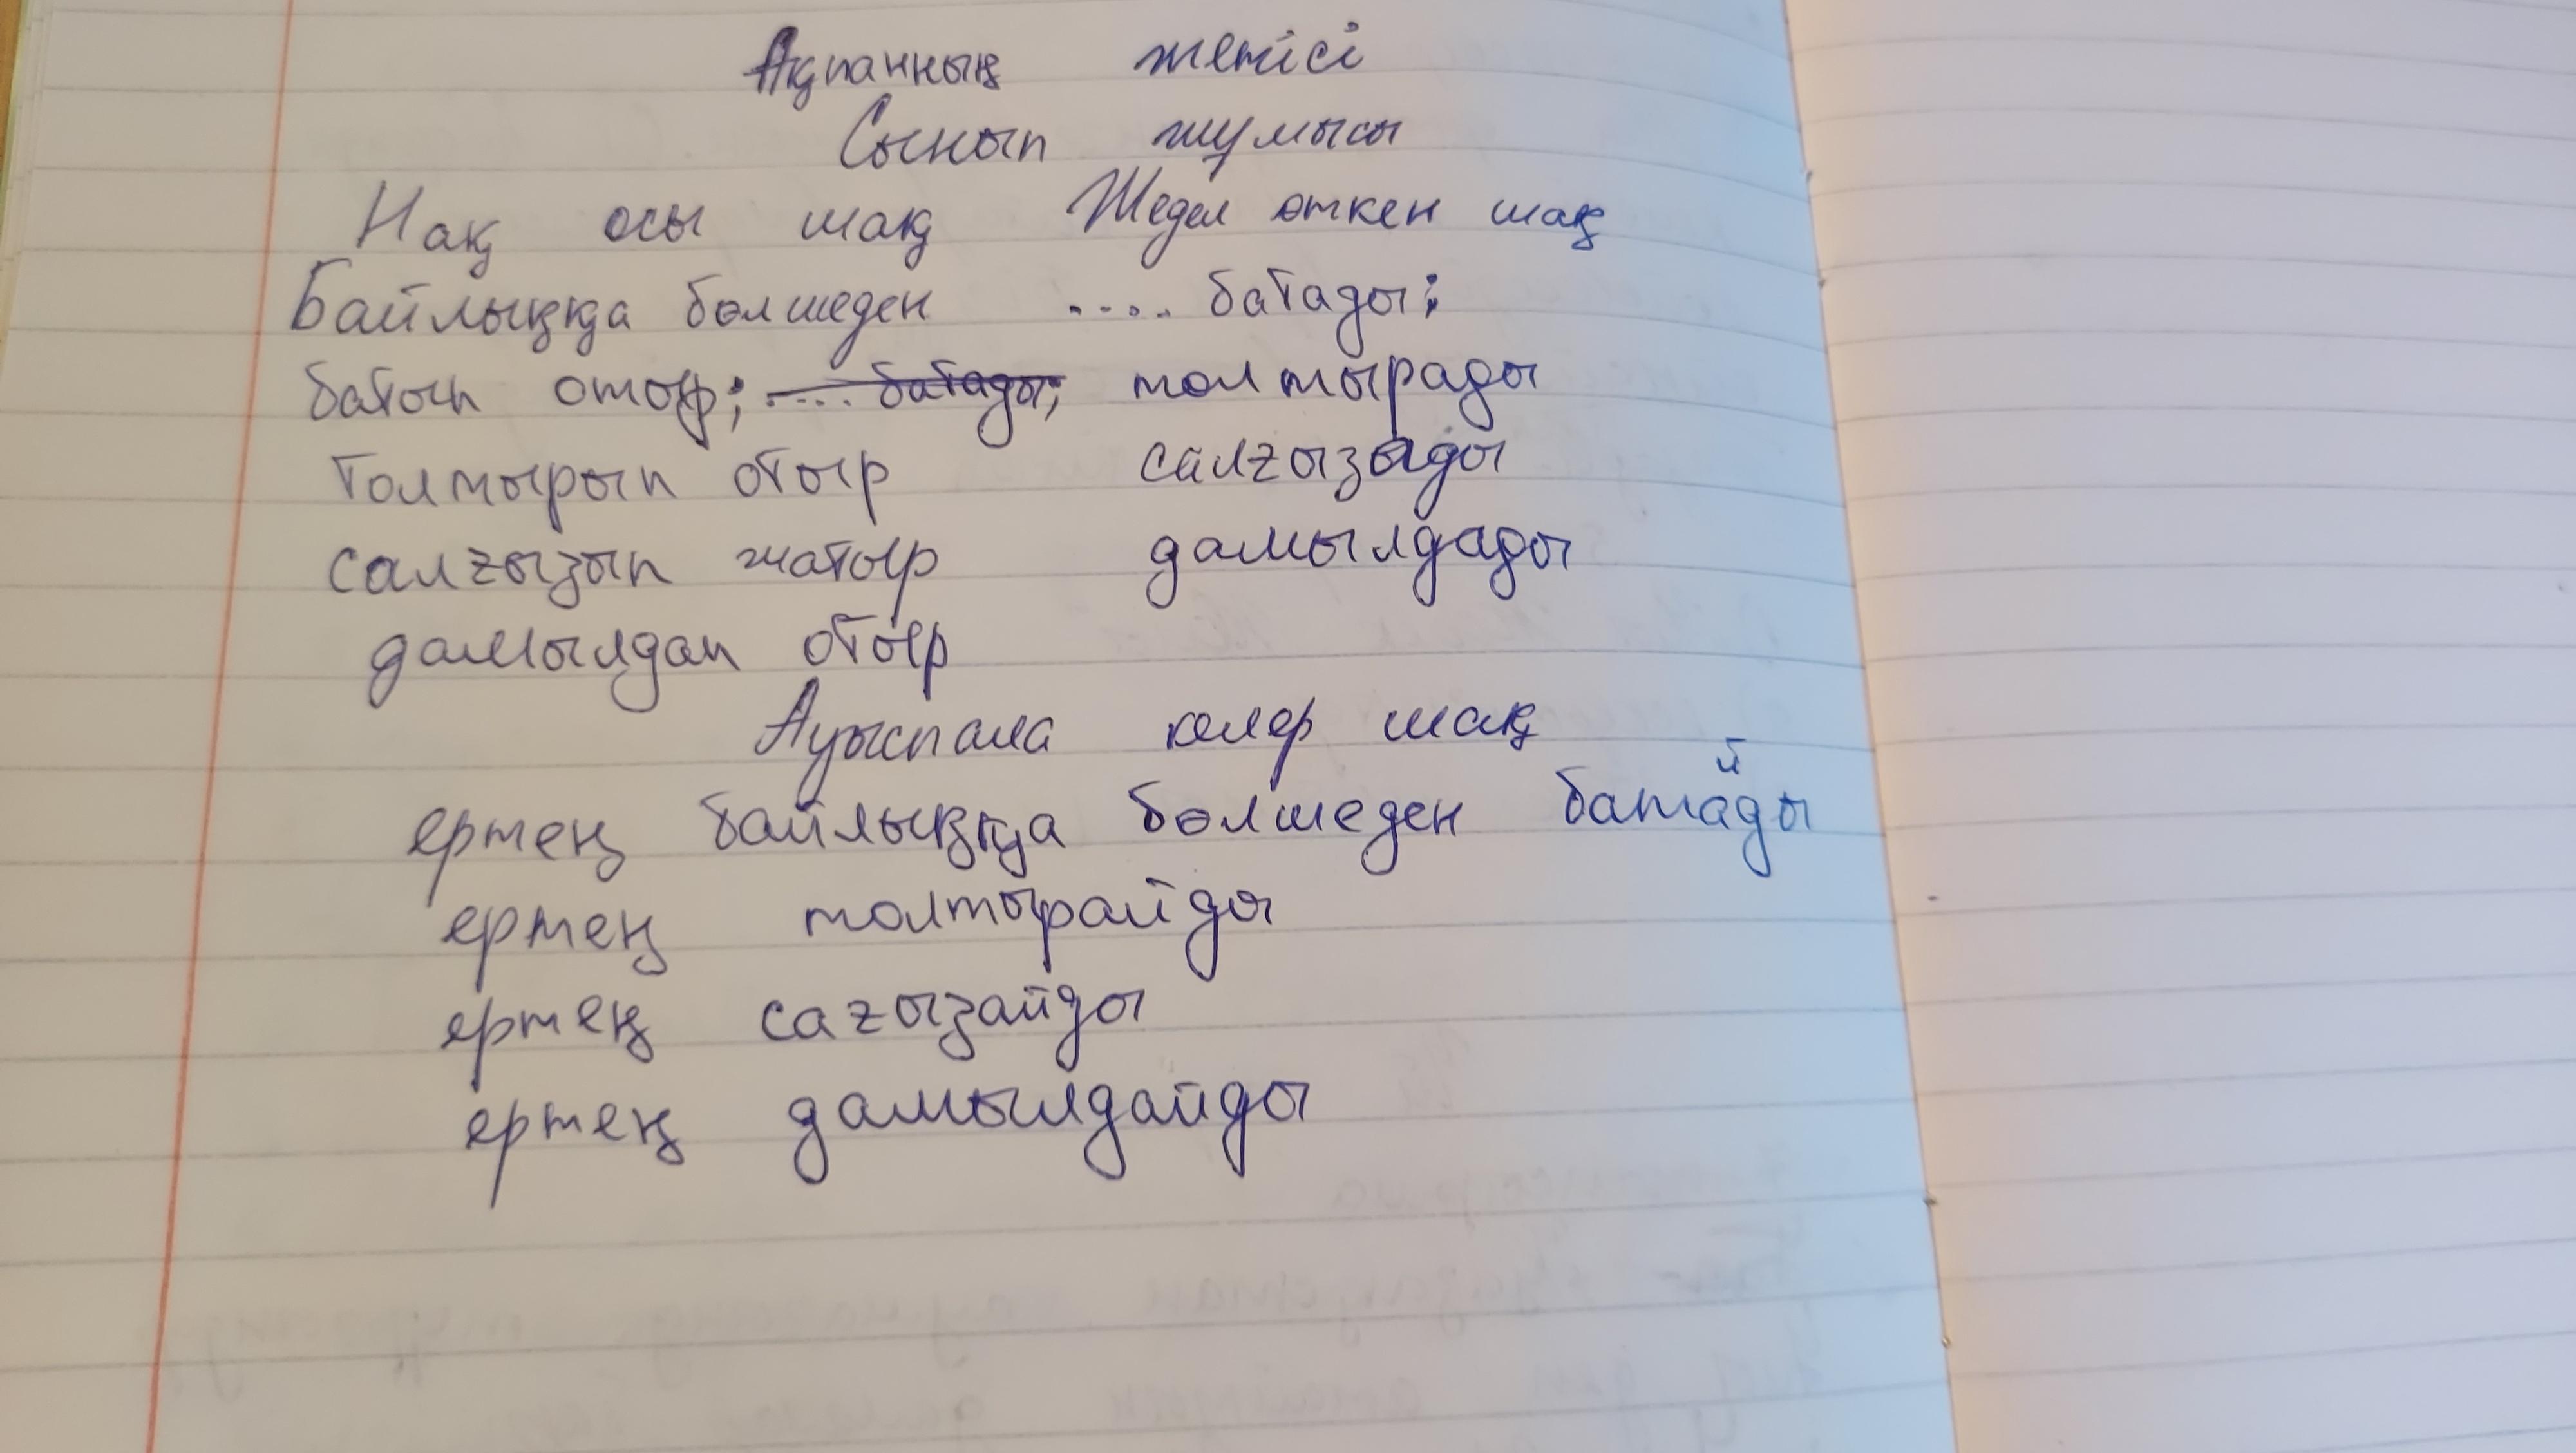 Ақпанның жетісі
Сынып жұмысы
Нақ осы шақ Жедел өткен шақ
Байлыққа бөлшеден ..... батады;
батып отыр; .... батады; толтырады
толтырып отыр салғызады
салғызып жатыр дамылдады
дамылдап отыр
Ауыспала келер шақ
й
ертең байлыққа бөлшеден батады
ертең толтырайды
ертең сағызайды
ертең дамылдайды